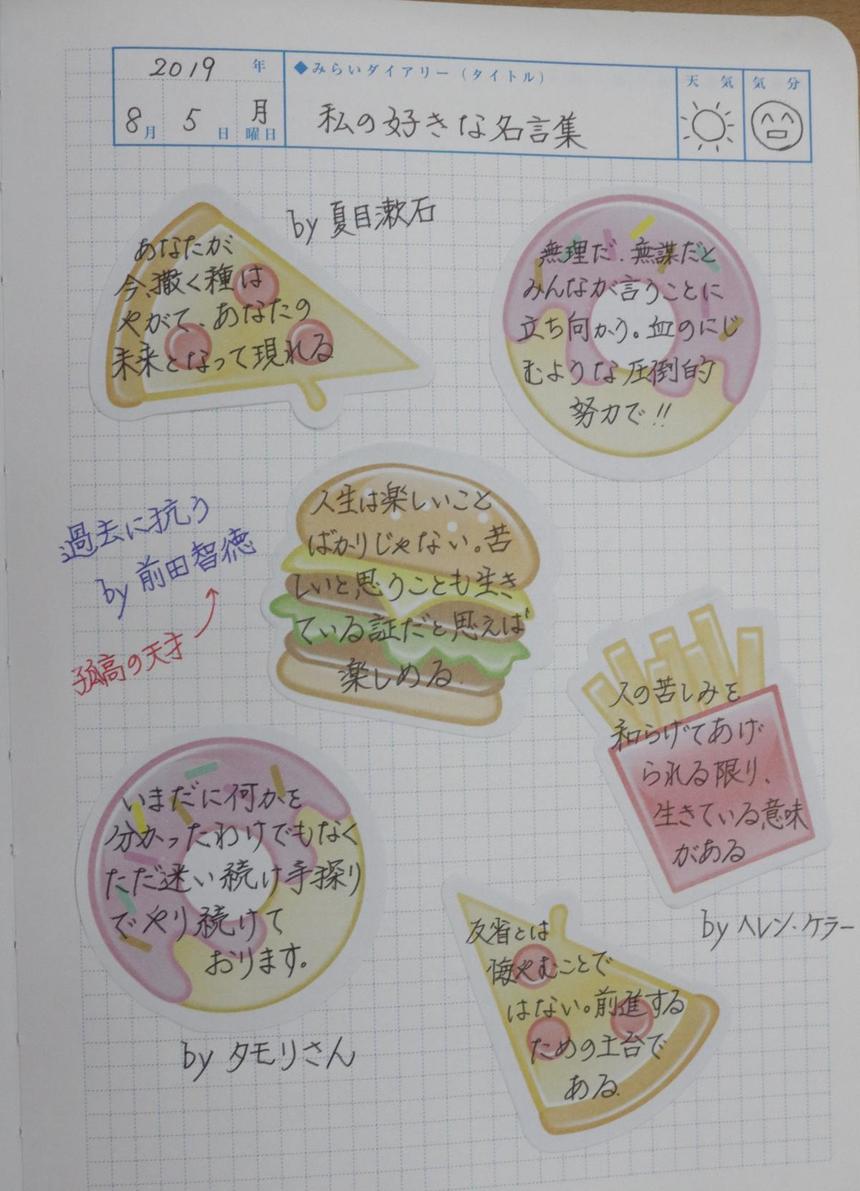 2019 年
8月 5日 月曜日
◆みらいダイアリー(タイトル)
私の好きな名言集
天気 気分
あなたが
今、撒く種は
やがて、あなたの
未来となって現れる
by 夏目漱石
無理だ、無謀だと
みんなが言うことに
立ち向かう。血のにじ
むような圧倒的
努力で!!
人生は楽しいこと
ばかりじゃない。苦
しいと思うことも生き
ている証だと思えば
楽しめる
過去に抗う
by 前田智徳
孤高の天才
人の苦しみを
和らげてあげ
られる限り、
生きている意味
がある
by ヘレン・ケラー
いまだに何かを
分かったわけでもなく
ただ迷い続け手探り
でやり続けて
おります。
by タモリさん
反省とは
悔やむことで
はない。前進する
ための土台で
ある。